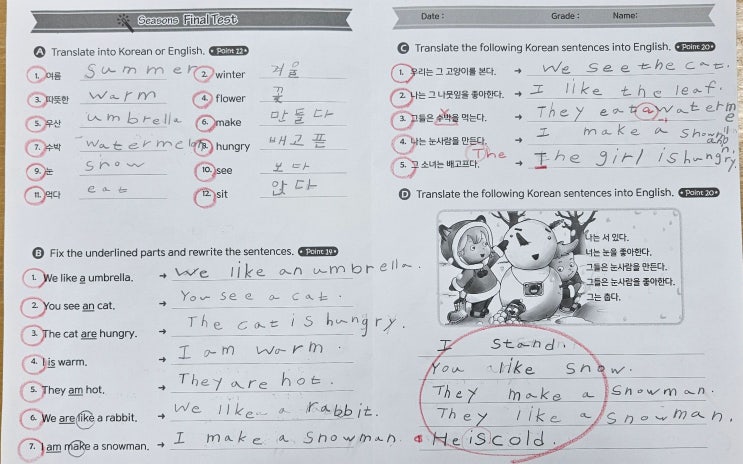 Seasons Final Test
A Translate into Korean or English. Point 12
1. 여름 summer 2. winter 겨울
3. 따뜻한 warm 4. flower 꽃
5. 우산 umbrella 6. make 만들다
7. 수박 watermelon 8. hungry 배고픈
9. 눈 snow 10. see 보다
11. 먹다 eat 12. sit 앉다
B Fix the underlined parts and rewrite the sentences. Point 14
1. We like a umbrella. → We like an umbrella.
2. You see an cat. → You see a cat.
3. The cat are hungry. → The cat is hungry.
4. I is warm. → I am warm.
5. They am hot. → They are hot.
6. We are like a rabbit. → We like a rabbit.
7. I am make a snowman. → I make a snowman.
Date : Grade : Name:
C Translate the following Korean sentences into English. Point 20
1. 우리는 그 고양이를 본다. → We see the cat.
2. 나는 그 나뭇잎을 좋아한다. → I like the leaf.
3. 그들은 수박을 먹는다. → They eat a waterme
4. 나는 눈사람을 만든다. → I make a snowman.
5. 그 소녀는 배고프다. The → The girl is hungry.
D Translate the following Korean sentences into English. Point 20
나는 서 있다.
너는 눈을 좋아한다.
그들은 눈사람을 만든다.
그들은 눈사람을 좋아한다.
그는 춥다.
I stand.
You like snow.
They make a snowman.
They like a snowman.
He is cold.